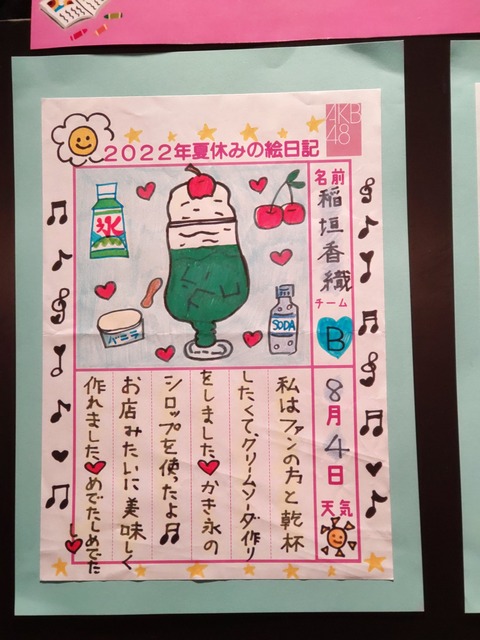 AKB
48
2022年夏休みの絵日記
名前
稲垣香織
チーム
B
氷
バニラ
SODA
8月4日
天気
私はファンの方と乾杯
したくて、クリームソーダ作り
をしました♥かき氷の
シロップを使ったよ♬
お店みたいに美味しく
作れました♥めでたしめでた
し♥